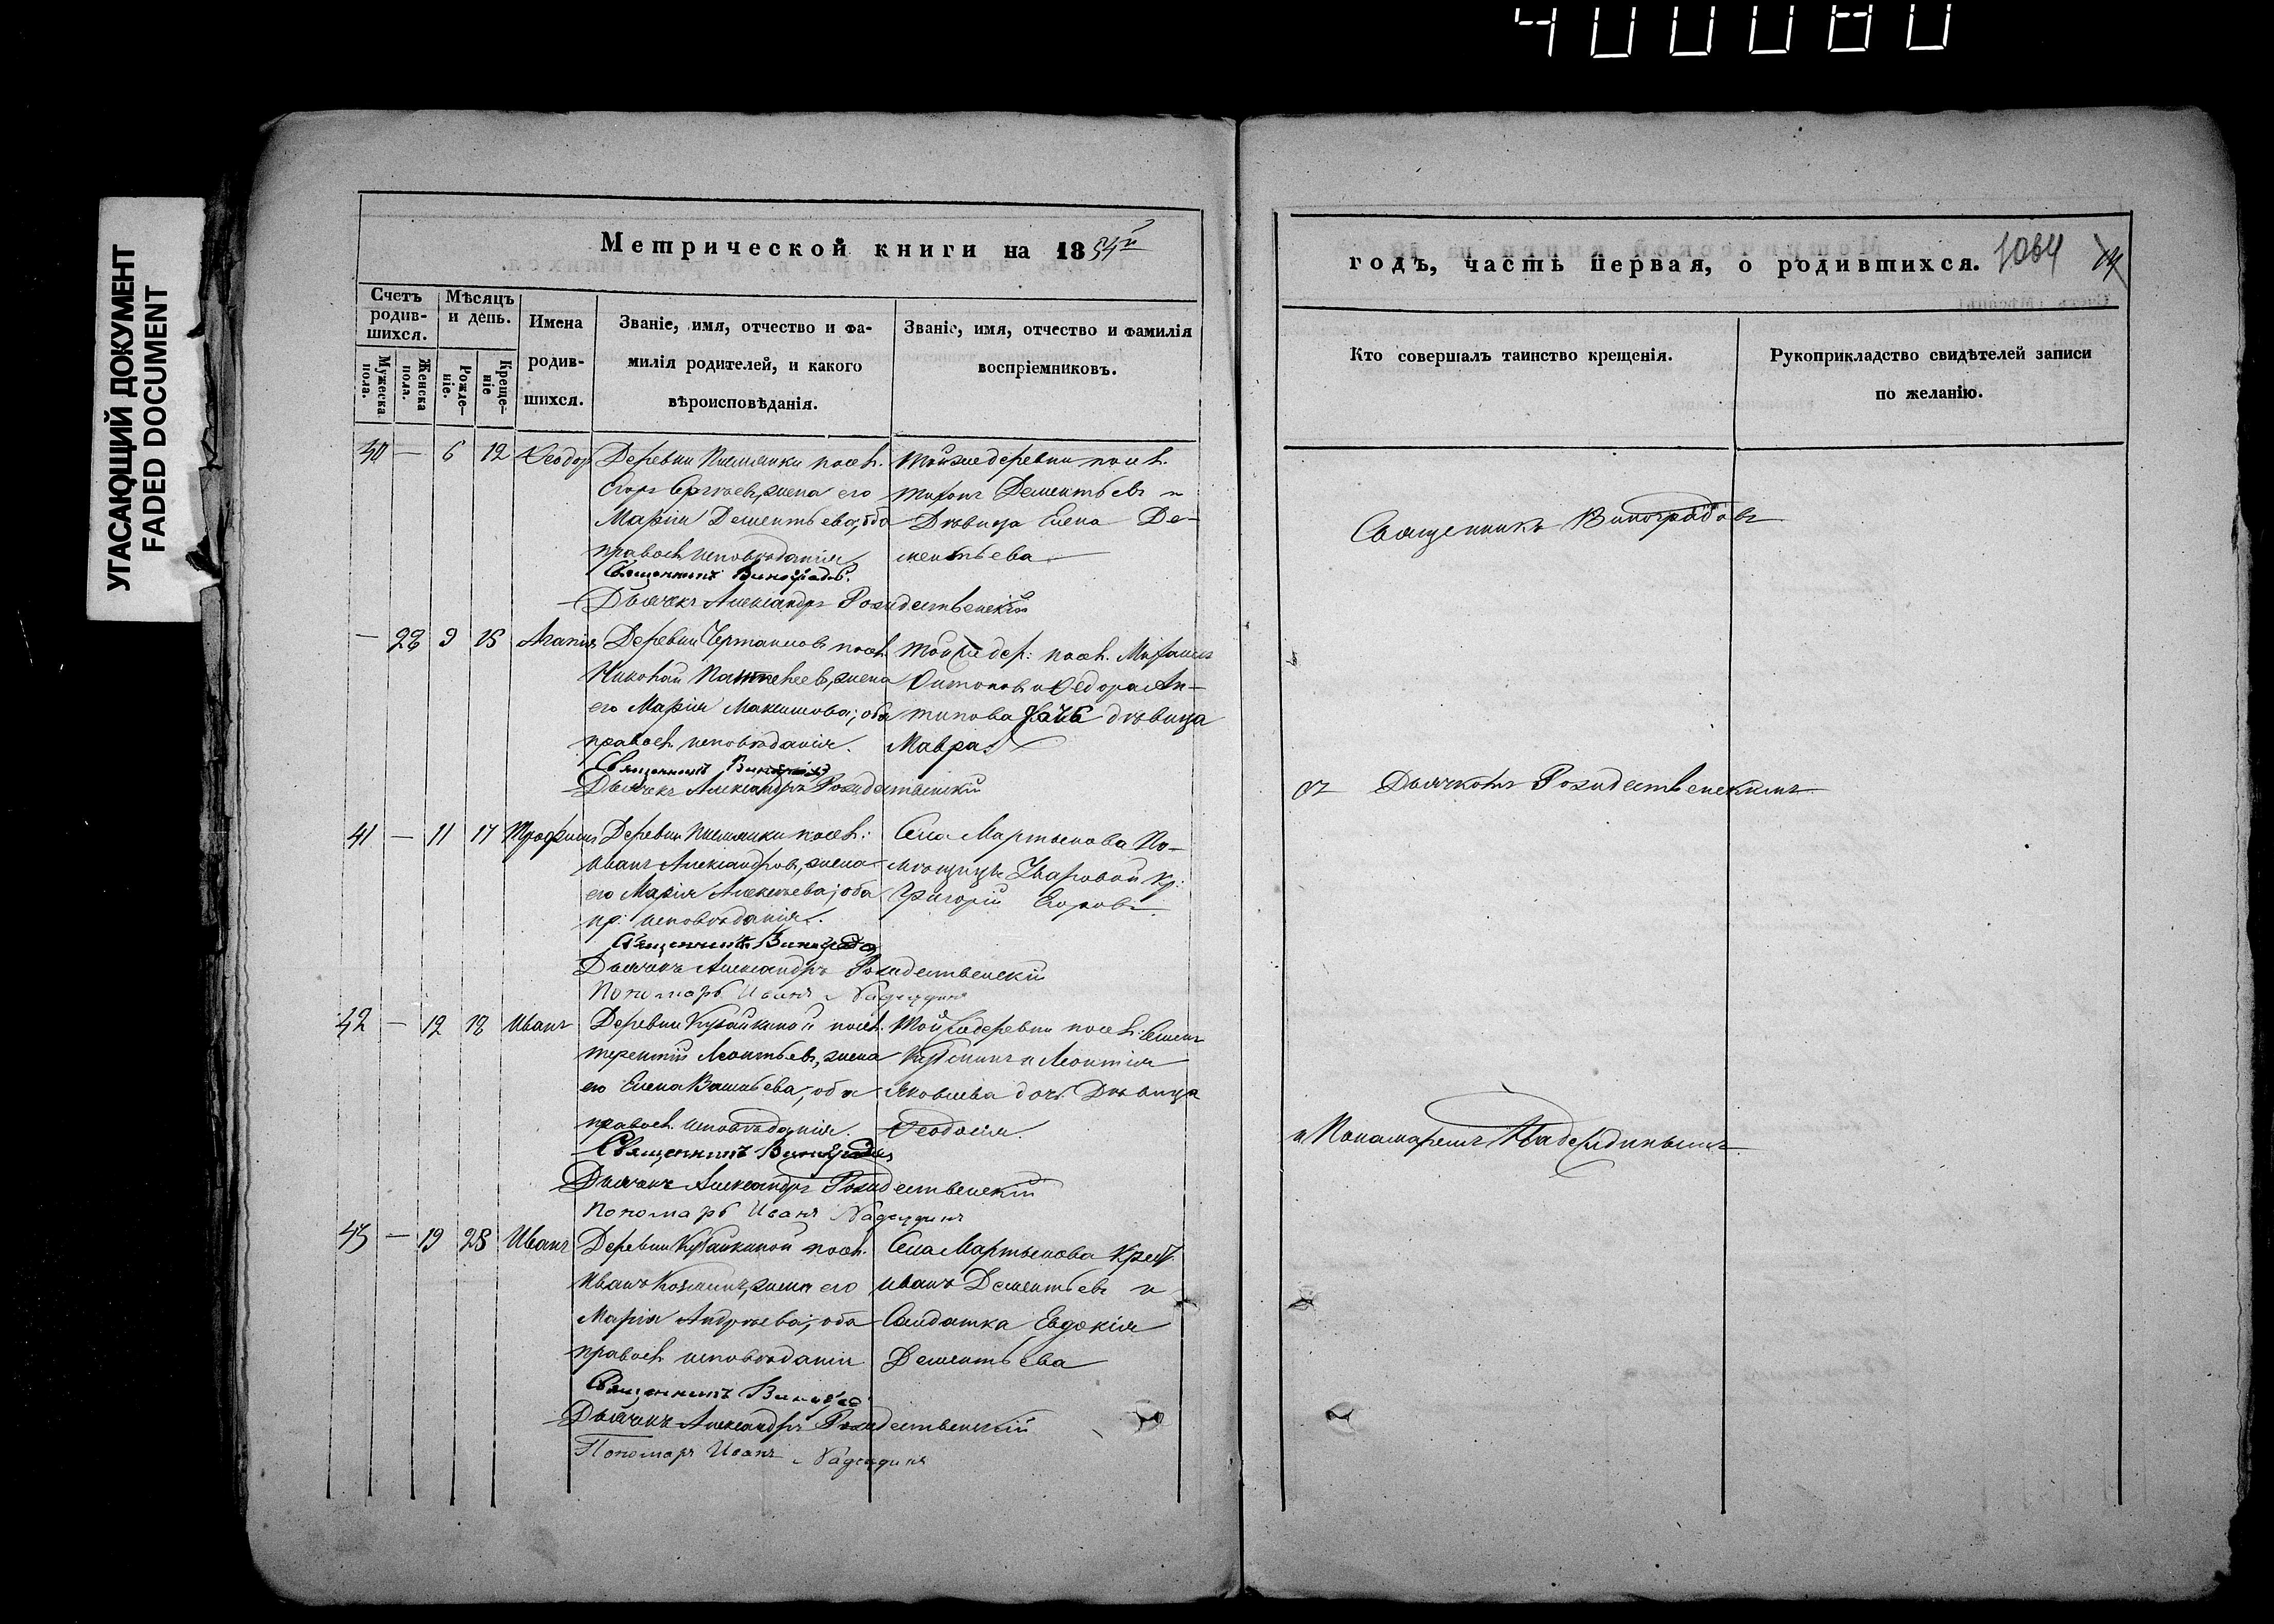 400080
УГАСАЮЩИЙ ДОКУМЕНТ
FADED DOCUMENT
Метрической книги на 1854й
годъ, часть первая, о родившихся. 1064
Счетъ родив-шихся.
Мужеска пола.
Женска пола.
Мѣсяцъ и день.
Рожде-ніе.
Креще-ніе
Имена родив-шихся.
Званіе, имя, отчество и фа-
милія родителей, и какого
вѣроисповѣданія.
Званіе, имя, отчество и фамилія
воспріемниковъ.
Кто совершалъ таинство крещенія.
Рукоприкладство свидѣтелей записи
по желанію.
40 — 6 12 Ѳеодоръ
Деревни посел.
Егоръ Сергѣевъ, жена его
Марія Дементьева, оба
правосл. исповѣданія
Тойже деревни посел.
Тихонъ Дементьевъ и
Дѣвица Елена Де-
ментьева
Священникъ Виноградовъ.
Дьячекъ Александръ Рождественскій
Священникъ Виноградовъ
— 28 9 15 Агапія
Деревни посел.
Николай жена
его Марія Максимова; оба
правосл. исповѣданія.
Тойже дер: посел.
Антоновъ и Ѳедора Ан-
типова дочь дѣвица
Мавра
Священникъ Виноградовъ
Дьячекъ Александръ Рождественскій
съ Дьячкомъ Рождественскимъ
41 — 11 17 Трофимъ
Деревни посел:
Иванъ Александровъ, жена
его Марія Алексѣева; оба
пр: исповѣданія.
Села Мартынова По-
мѣщицы Уваровой кр:
Григорій Егоровъ.
Священникъ Виноградовъ
Дьячекъ Александръ Рождественскій
Пономарь Иванъ Надеждинъ
42 — 12 18 Иванъ
Деревни посел.
Терентій Леонтьевъ, жена
его Елена Васильева, оба
правосл. исповѣданія.
Тойже деревни посел: Семенъ
и Леонтія
Яковлева дочь Дѣвица
Ѳеодосія.
Священникъ Виноградовъ
Дьячекъ Александръ Рождественскій
Пономарь Иванъ Надеждинъ
и Пономаремъ Надеждинымъ
43 — 19 28 Иванъ
Деревни посел.
Иванъ Козминъ, жена его
Марія Андреева, оба
правосл. исповѣданія
Села Мартынова Крест.
Иванъ Дементьевъ и
Солдатка Евдокія
Дементьева
Священникъ Виноградовъ
Дьячекъ Александръ Рождественскій
Пономарь Иванъ Надеждинъ